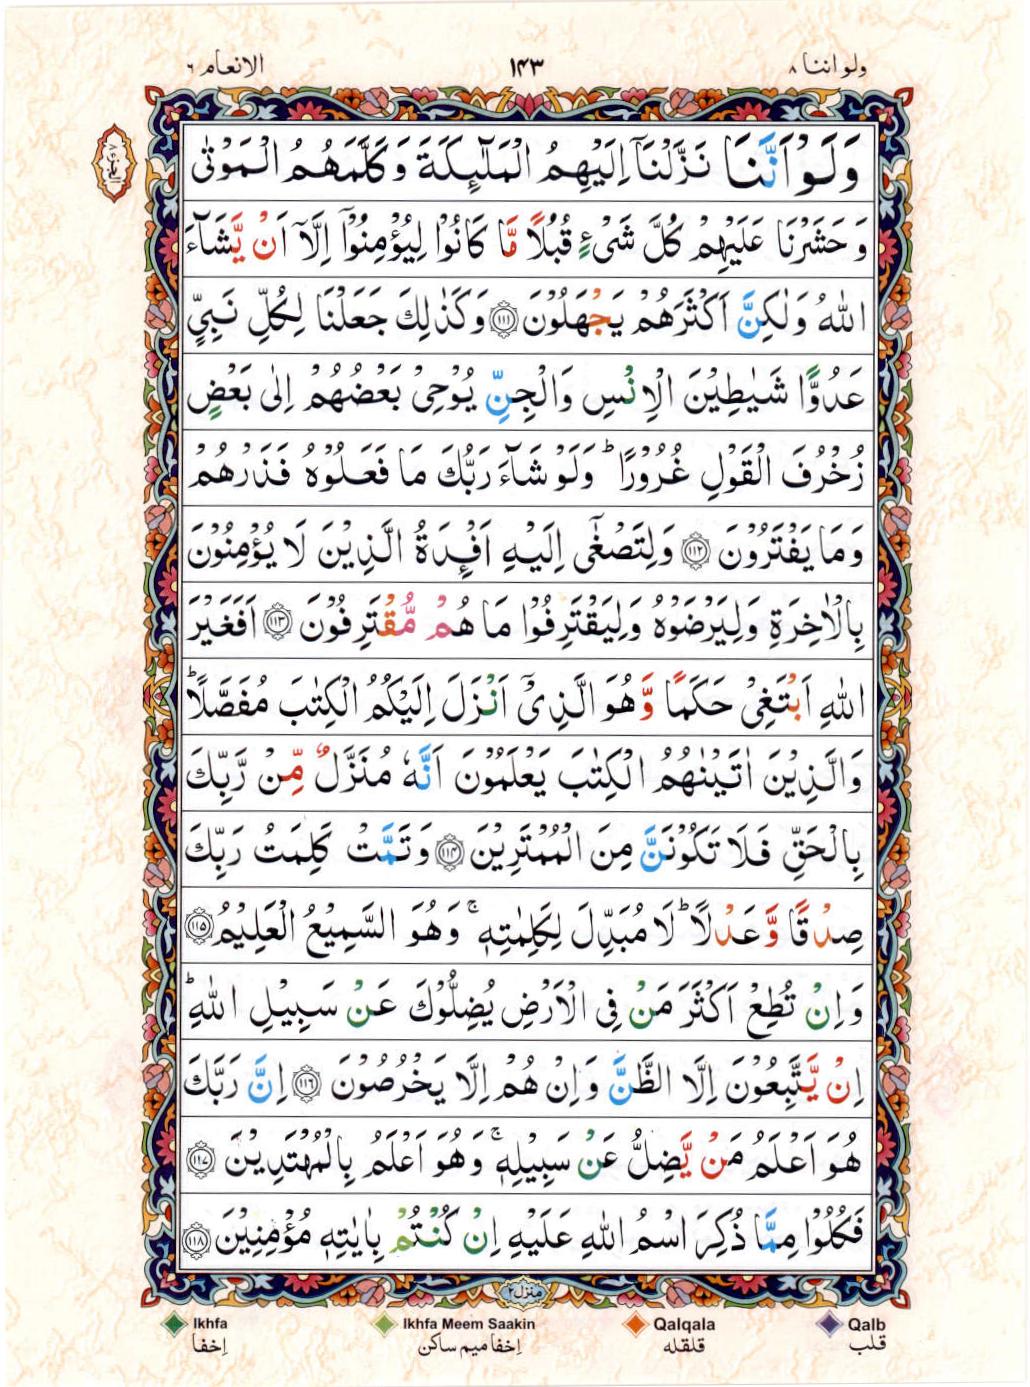 ولواننا ۸
۱۴۳
الانعام ۶
وَلَوْ اَنَّنَا نَزَّلْنَاۤ اِلَيْهِمُ الْمَلٰٓئِكَةَ وَكَلَّمَهُمُ الْمَوْتٰى
وَحَشَرْنَا عَلَيْهِمْ كُلَّ شَیْءٍ قُبُلًا مَّا كَانُوْا لِيُؤْمِنُوْۤا اِلَّاۤ اَنْ يَّشَآءَ
اللّٰهُ وَلٰكِنَّ اَكْثَرَهُمْ يَجْهَلُوْنَ ۝۱۱۱ وَكَذٰلِكَ جَعَلْنَا لِكُلِّ نَبِيٍّ
عَدُوًّا شَيٰطِيْنَ الْاِنْسِ وَالْجِنِّ يُوْحِیْ بَعْضُهُمْ اِلٰى بَعْضٍ
زُخْرُفَ الْقَوْلِ غُرُوْرًا ؕ وَلَوْ شَآءَ رَبُّكَ مَا فَعَلُوْهُ فَذَرْهُمْ
وَمَا يَفْتَرُوْنَ ۝۱۱۲ وَلِتَصْغٰۤى اِلَيْهِ اَفْـِٕدَةُ الَّذِيْنَ لَا يُؤْمِنُوْنَ
بِالْاٰخِرَةِ وَلِيَرْضَوْهُ وَلِيَقْتَرِفُوْا مَا هُمْ مُّقْتَرِفُوْنَ ۝۱۱۳ اَفَغَيْرَ
اللّٰهِ اَبْتَغِیْ حَكَمًا وَّهُوَ الَّذِیْۤ اَنْزَلَ اِلَيْكُمُ الْكِتٰبَ مُفَصَّلًا ؕ
وَالَّذِيْنَ اٰتَيْنٰهُمُ الْكِتٰبَ يَعْلَمُوْنَ اَنَّهٗ مُنَزَّلٌ مِّنْ رَّبِّكَ
بِالْحَقِّ فَلَا تَكُوْنَنَّ مِنَ الْمُمْتَرِيْنَ ۝۱۱۴ وَتَمَّتْ كَلِمَتُ رَبِّكَ
صِدْقًا وَّعَدْلًا ؕ لَا مُبَدِّلَ لِكَلِمٰتِهٖ ۚ وَهُوَ السَّمِيْعُ الْعَلِيْمُ ۝۱۱۵
وَاِنْ تُطِعْ اَكْثَرَ مَنْ فِى الْاَرْضِ يُضِلُّوْكَ عَنْ سَبِيْلِ اللّٰهِ ؕ
اِنْ يَّتَّبِعُوْنَ اِلَّا الظَّنَّ وَاِنْ هُمْ اِلَّا يَخْرُصُوْنَ ۝۱۱۶ اِنَّ رَبَّكَ
هُوَ اَعْلَمُ مَنْ يَّضِلُّ عَنْ سَبِيْلِهٖ ۚ وَهُوَ اَعْلَمُ بِالْمُهْتَدِيْنَ ۝۱۱۷
فَكُلُوْا مِمَّا ذُكِرَ اسْمُ اللّٰهِ عَلَيْهِ اِنْ كُنْتُمْ بِاٰيٰتِهٖ مُؤْمِنِيْنَ ۝۱۱۸
منزل ۲
Ikhfa Ikhfa Meem Saakin Qalqala Qalb
اِخفا اِخفا میم ساکن قلقله قلب